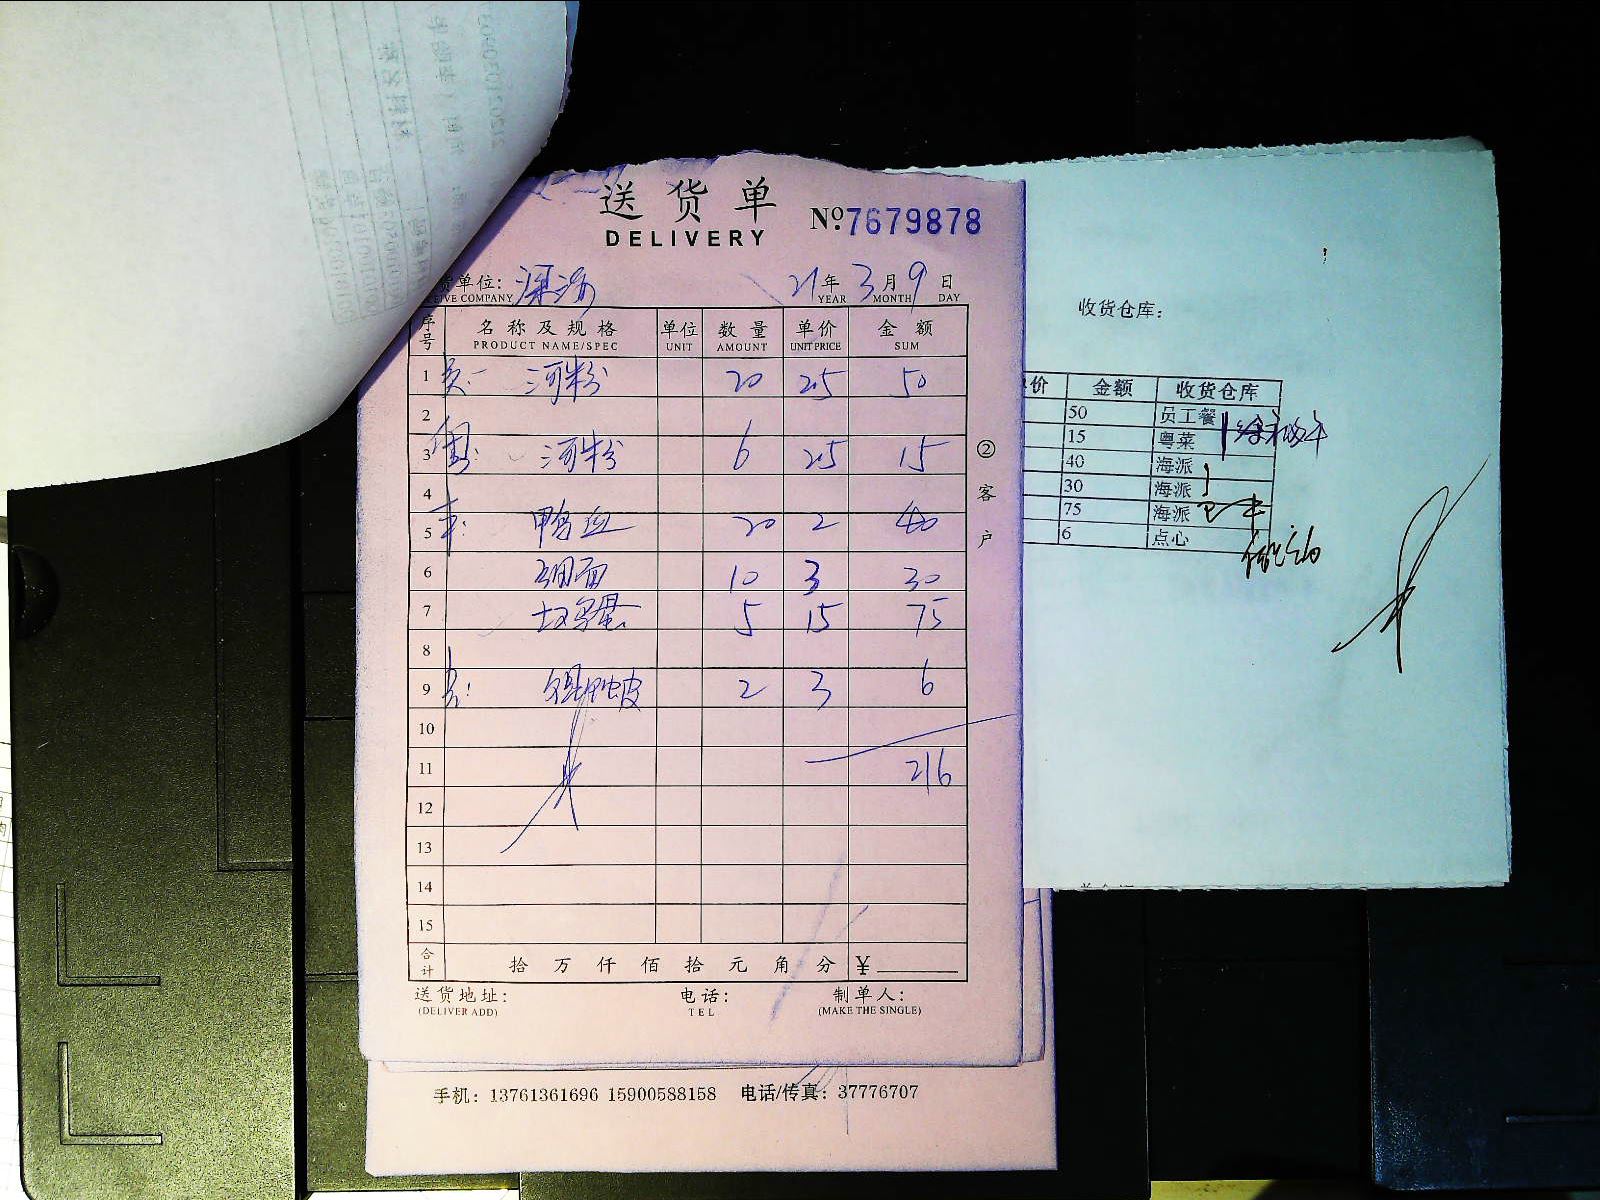 送货单
DELIVERY
№:7679878
货单位:
EIVE COMPANY
21年3月9日
YEAR MONTH DAY
序号 名称及规格 单位 数量 单价 金额
PRODUCT NAME/SPEC UNIT AMOUNT UNIT PRICE SUM
1 河粉 20 2.5 50
2
3 河粉 6 2.5 15
4
5 鸭血 20 2 40
6 细面 10 3 30
7 5 15 75
8
9 2 3 6
10
11 216
12
13
14
15
合计 拾 万 仟 佰 拾 元 角 分 ¥
送货地址: 电话: 制单人:
(DELIVER ADD) TEL (MAKE THE SINGLE)
②客户
手机: 13761361696 15900588158 电话/传真: 37776707
收货仓库:
价 金额 收货仓库
50 员工餐
15 粤菜
40 海派
30 海派
75 海派
6 点心